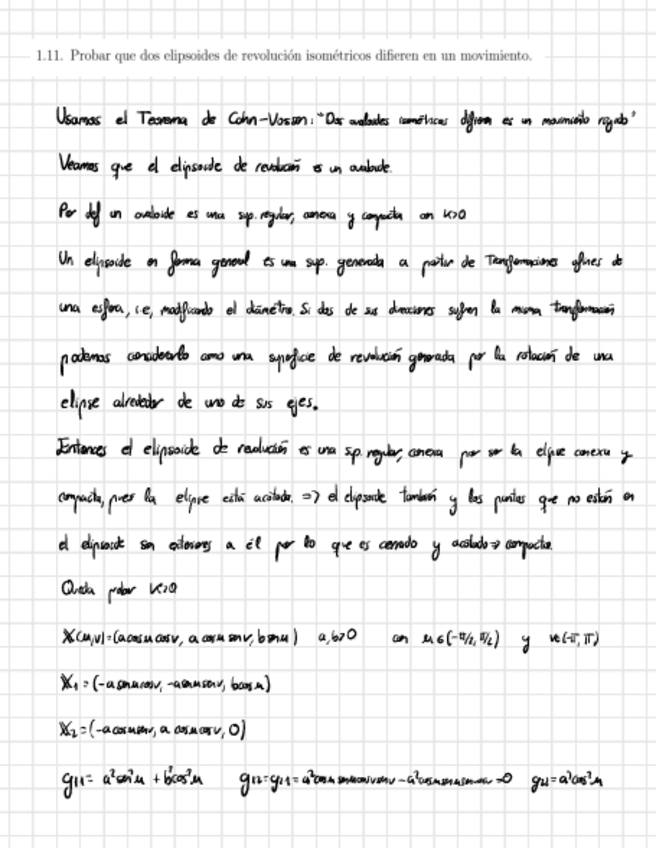 1.11. Probar que dos elipsoides de revolución isométricos difieren en un movimiento.
Usamos el Teorema de Cohn-Vossen: "Dos ovaloides isométricos difieren es un movimiento rígido"
Veamos que el elipsoide de revolución es un ovaloide.
Por def un ovaloide es una sup. regular, conexa y compacta con K>0
Un elipsoide en forma general es una sup. generada a partir de Transformaciones afines de
una esfera, i.e, modificando el diámetro. Si dos de sus direcciones sufren la misma transformación
podemos considerarlo como una superficie de revolución generada por la rotación de una
elipse alrededor de uno de sus ejes.
Entonces el elipsoide de revolución es una sp. regular, conexa por ser la elipse conexa y
compacta, pues la elipse está acotada. => el elipsoide también y los puntos que no están en
el elipsoide son exteriores a él por lo que es cerrado y acotado => compacto.
Queda probar K>0
X(u,v)=(acosu cosv, a cosu senv, bsenu) a,b>0 con u∈(-π/2, π/2) y v∈(-π, π)
X₁=(-asenucosv, -asenusenv, bcosu)
X₂=(-acosusenv, a cosucosv, 0)
g₁₁= a²sen²u + b²cos²u g₁₂=g₂₁= a²cosu senucosvsenv - a²cosusenusenvcosv =0 g₂₂=a²cos²u